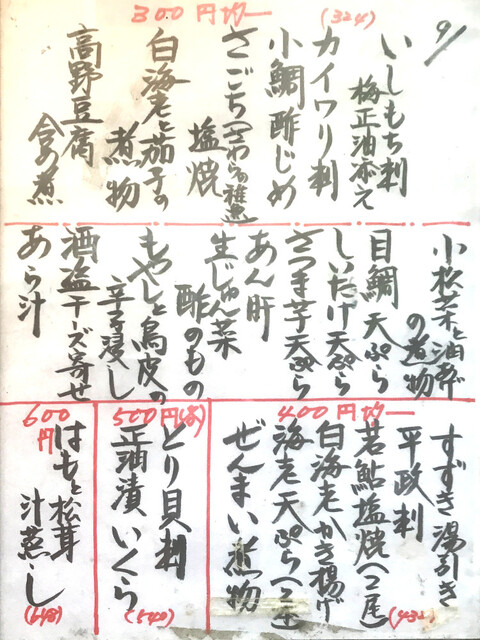 9/
300円均一
(324)
いしもち刺
梅正油添え
カイワリ刺
小鯛酢じめ
さごち(さわらの稚魚)
塩焼
白海老と茄子の
煮物
高野豆腐
含め煮
小松菜と油揚
の煮物
目鯛天ぷら
しいたけ天ぷら
さつま芋天ぷら
あん肝
生じゅん菜
酢のもの
もやしと鳥皮の
辛子浸し
酒盗チーズ寄せ
あら汁
400円均一
すずき湯引き
平政刺
若鮎塩焼(2尾)
白海老かき揚げ
海老天ぷら(2本)
ぜんまい煮物
(432)
500円(お)
とり貝刺
正油漬いくら
(540)
600円
はもと松茸
汁蒸し
(648)